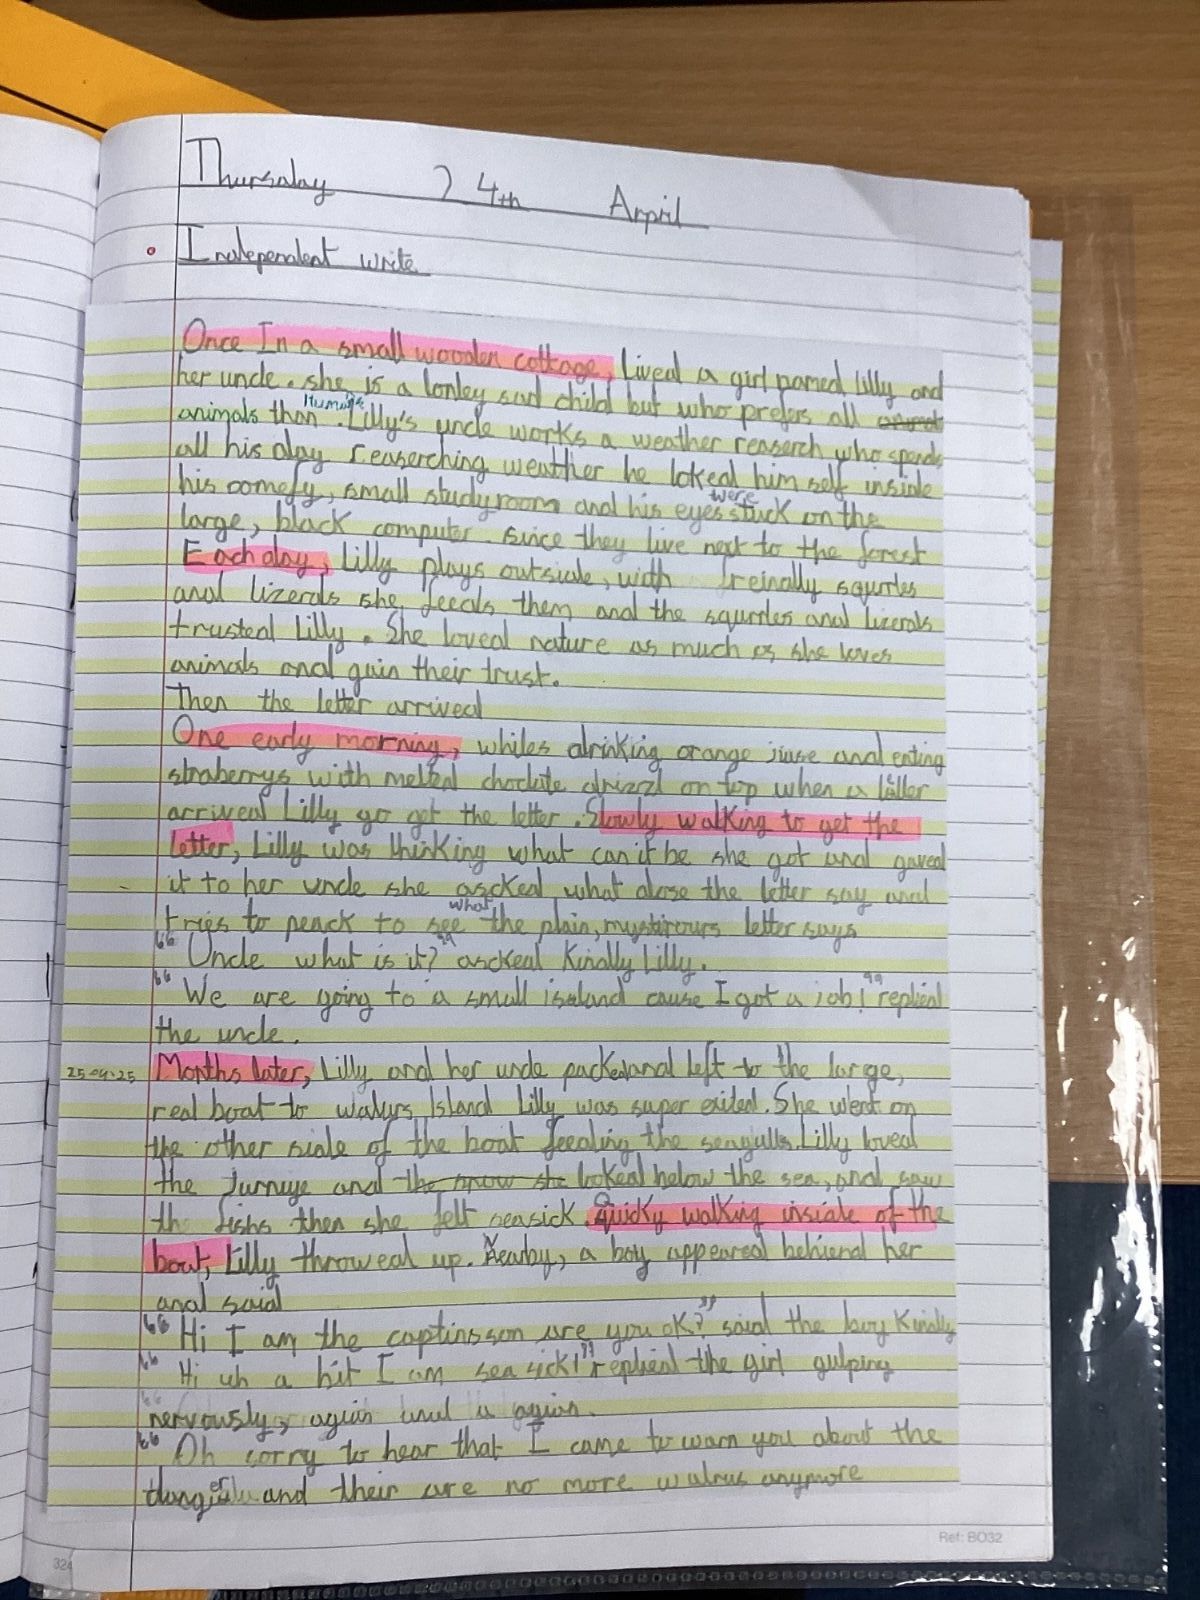 Thursday 24th Arpril
Independent write
Once In a small wooden cottage, Lived a girl named Lilly and
her uncle. she is a lonley sad child but who prefers all
animals than Humans. Lilly's uncle works a weather reaserch who spends
all his day reaserching weather he loked him self inside
his comefy, small study room and his eyes were stuck on the
large, black computer. since they live next to the forest
Each day, Lilly plays outside, with freindly squrrles
and lizerds she feeds them and the squrrles and lizerds
trusted Lilly. She loved nature as much as she loves
animals and gain their trust.
Then the letter arrived
One early morning, whiles drinking orange jiuse and eating
straberrys with melted choclate drizzl on top when a letter
arrived Lilly go get the letter. Slowly walking to get the
letter, Lilly was thinking what can it be she got and gaved
it to her uncle she ascked what dose the letter say and
tries to peack to see what the plain, mystirours letter says
"Uncle what is it?" asckeal Kindly Lilly.
"We are going to a small iseland cause I got a job!" replied
the uncle.
25-04-25 Months later, Lilly and her uncle packed and left to the large,
real boat to walurs Island Lilly was super exited. She went on
the other side of the boat feeding the seagulls. Lilly loved
the Jurnuye and the know she looked below the sea, and saw
the fishs then she felt seasick. Quicky walking inside of the
boat, Lilly throwed up. Nearby, a boy appeared behiend her
and said
"Hi I am the captins son are you OK?" said the boy Kindly
"Hi uh a bit I am sea sick!" replied the girl gulping
nervously, again and a again.
"Oh sorry to hear that I came to warn you about the
and their are no more walrus anymore
324
Ref: BO32